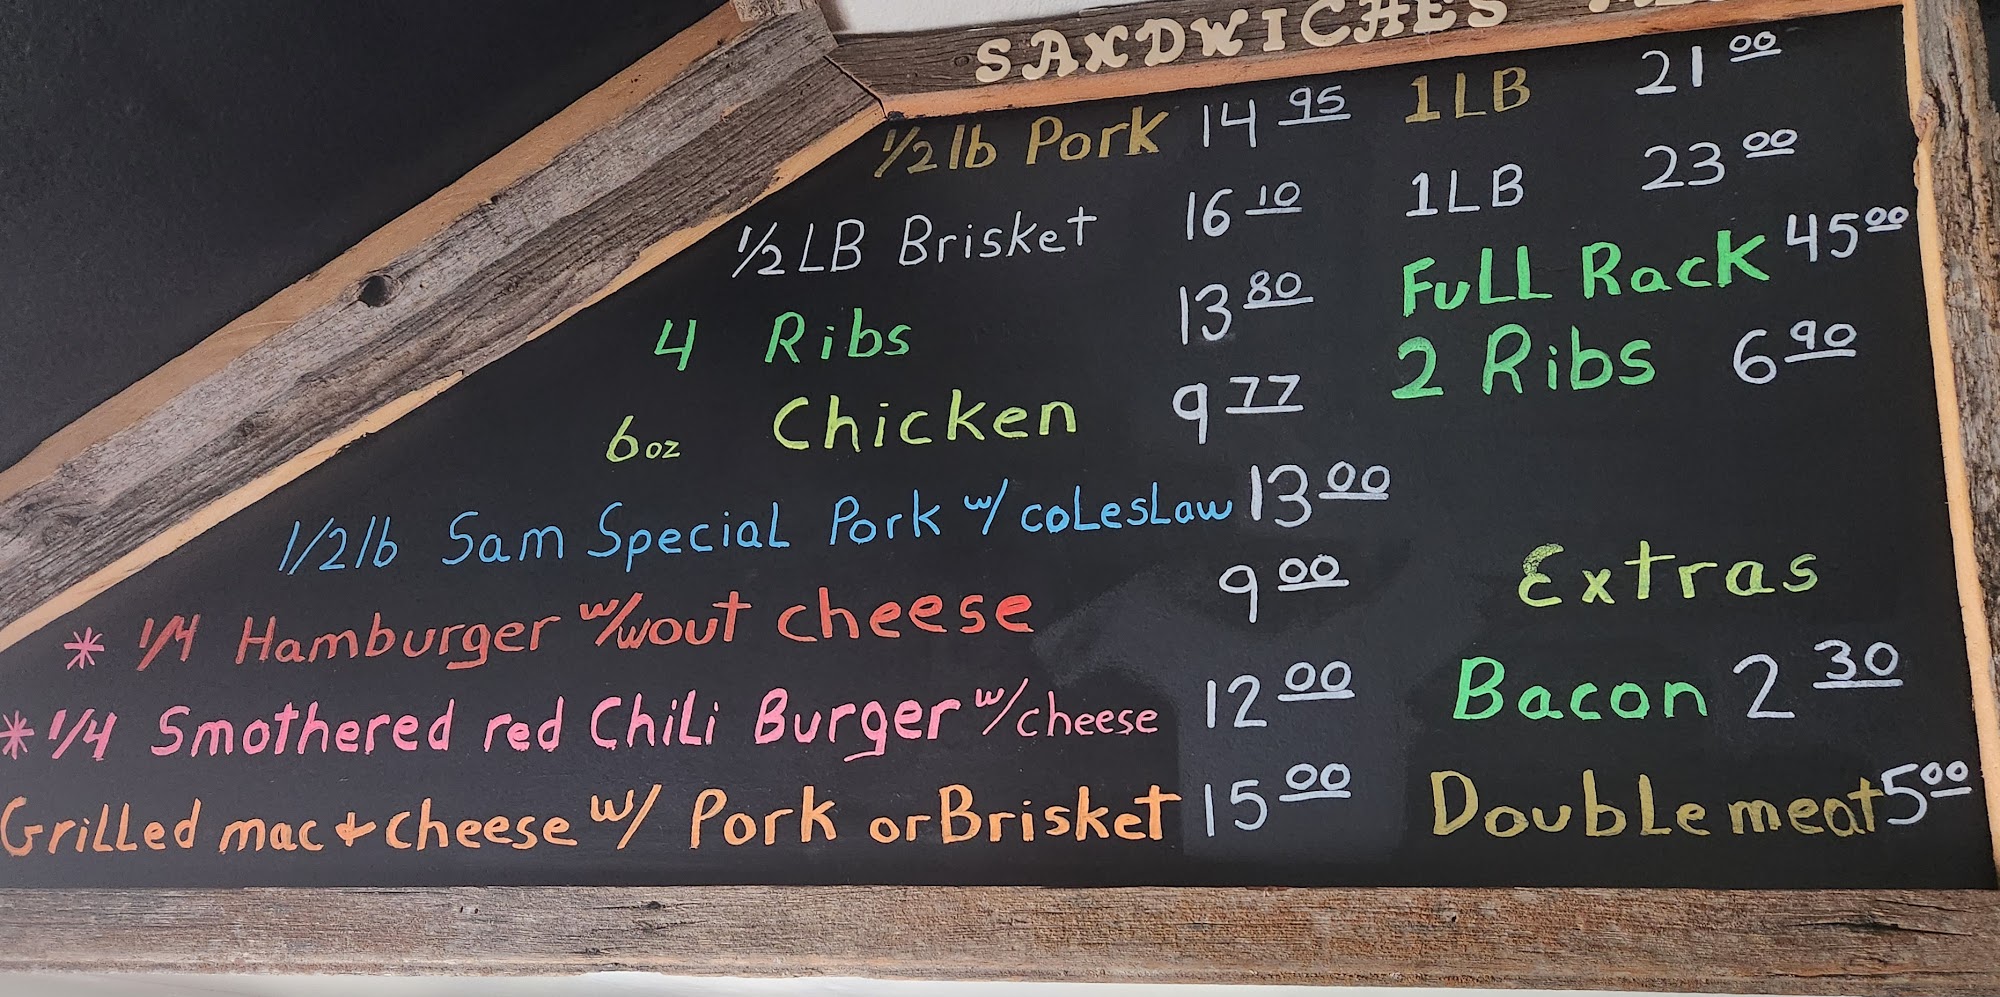 SANDWICHES
1/2 lb Pork 14 95 1LB 21 00
1/2 LB Brisket 16 10 1LB 23 00
4 Ribs 13 80 FuLL Rack 45 00
6oz Chicken 9 77 2 Ribs 6 90
1/2lb Sam Special Pork w/ coLesLaw 13 00
* 1/4 Hamburger w/wout cheese 9 00 Extras
* 1/4 Smothered red ChiLi Burger w/cheese 12 00 Bacon 2 30
GriLLed mac + cheese w/ Pork or Brisket 15 00 DoubLe meat 5 00